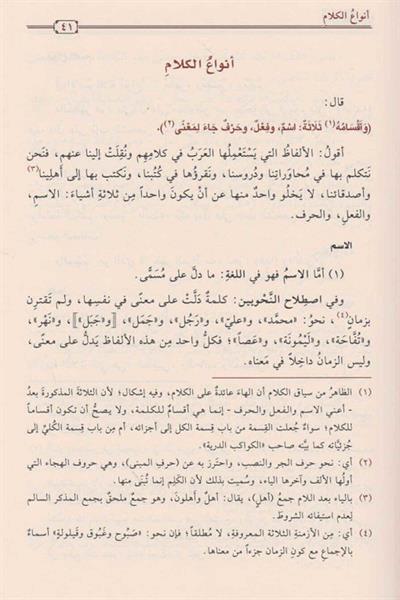 أنواعُ الكلام
٤١
أنواعُ الكلامِ
قال:
(وَأَقْسَامُهُ(١) ثَلَاثَةٌ: اسْمٌ، وفِعْلٌ، وحَرْفٌ جَاءَ لِمَعْنًى(٢)).
أقولُ: الألفاظُ التي يَسْتَعْمِلُها العَرَبُ في كلامِهِم ونُقِلَتْ إلينا عنهم، فنَحن
نَتكلم بها في مُحاوَراتِنا ودُروسنا، ونَقرؤُها في كُتُبِنا، ونَكتب بها إلى أهلِينا(٣)
وأصدقائنا، لا يَخْلُو واحدٌ منها عن أنْ يكونَ واحداً مِن ثلاثةِ أشياءَ: الاسمِ،
والفعلِ، والحرف.
الاسم
(١) أمَّا الاسمُ فهو في اللغةِ: ما دلَّ على مُسَمًّى.
وفي اصطِلاحِ النَّحْويين: كلمةٌ دَلَّتْ على معنًى في نفسِها، ولم تَقترِن
بزمانٍ(٤)، نحوُ: «محمد»، و«عليّ»، و«رَجُل»، و«جَمَل»، [و«جَبَل»]، و«نَهْر»،
و«تُفَّاحَة»، و«لَيْمُونَة»، و«عَصاً»؛ فكلُّ واحد مِن هذه الألفاظ يَدلُّ على معنًى،
وليس الزمانُ داخِلاً في مَعناه.
(١) الظاهرُ من سياق الكلام أن الهاءَ عائدةٌ على الكلام، وفيه إشكال؛ لأن الثلاثةَ المذكورةَ بعدُ
- أعني الاسم والفعل والحرف - إنما هي أقسامٌ للكلمة، ولا يصحُّ أن تكون أقساماً
للكلام؛ سواءٌ جُعلت القِسمة من باب قسمة الكل إلى أجزائه، أم مِن باب قسمة الكُلِّيِّ إلى
جُزئيَّاته كما بيَّنه صاحب «الكواكب الدرية».
(٢) أي: نحو حرف الجر والنصب، واحتَرز به عن (حرفِ المبنى)، وهي حروف الهجاء التي
أولُها الألف وآخرها الياء، وسُميت بذلك لأن الكَلِم إنما تُبنَى منها.
(٣) بالياء بعد اللام جمعُ (أهلٍ)، يقال: أهلٌ وأهلونَ، وهو جمعٌ ملحقٌ بجمع المذكر السالم
لعدم استيفائه الشروطَ.
(٤) أي: مِن الأزمنةِ الثلاثة المعروفةِ، لا مُطلقاً؛ فإن نحو: «صَبُوح وغَبُوق وقَيلولة» أسماءٌ
بالإجماعِ مع كونِ الزمان جزءاً من معناها.